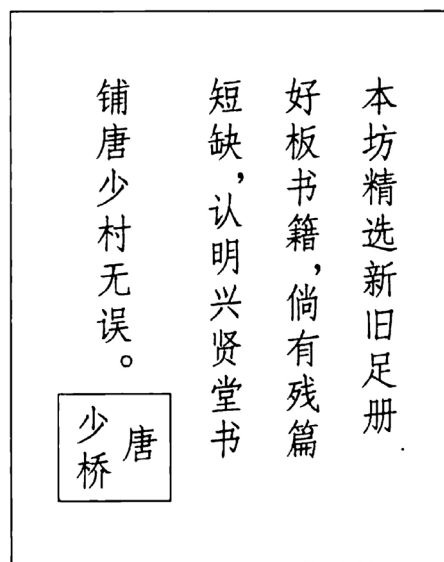 本坊精选新旧足册
好板书籍，倘有残篇
短缺，认明兴贤堂书
铺唐少村无误。
唐
少桥